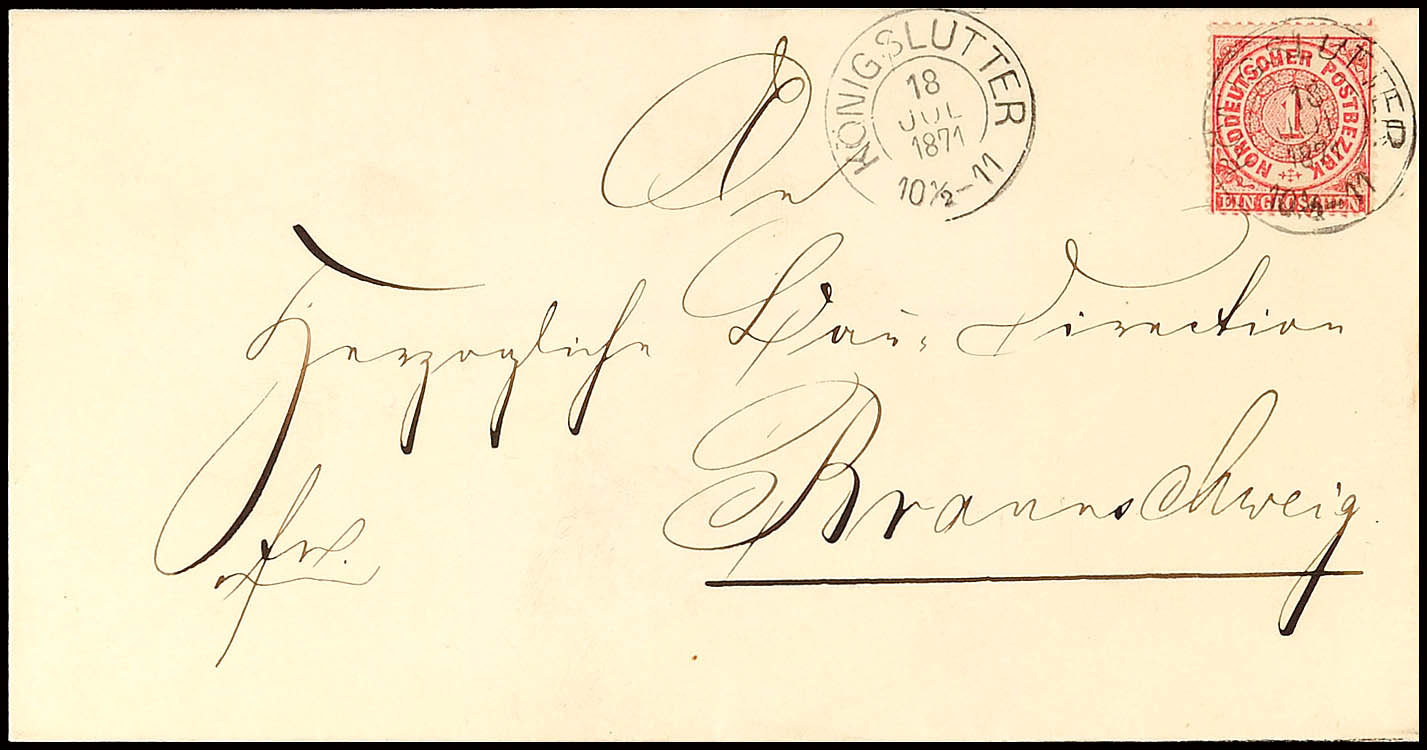 KÖNIGSLUTTER
18
JUL
1871
10½-11
NORDDEUTSCHER POSTBEZIRK
1
EIN GROSCHEN
An
Herzogliche Bau-Direction
Braunschweig